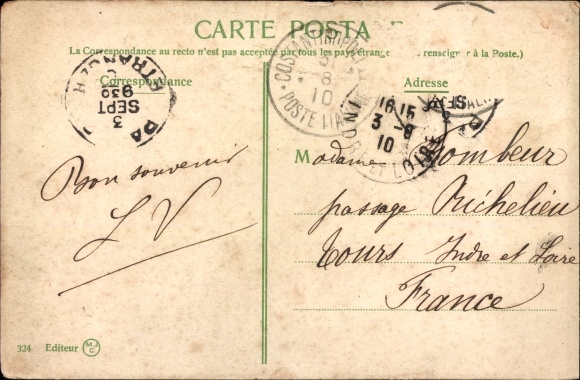 CARTE POSTA
(La Correspondance au recto n'est pas acceptée par tous les pays étrange renseigner à la Poste.)
Correspondance
Adresse
COSTANTINOPOLI
3
8
10
POSTE ITA
3
SEPT
930
16 15
3 -9
10
INDRE ET LOIRE
Bon souvenir
LV
Madame Combeur
passage Richelieu
Tours Indre et Loire
France
324 Editeur MJC